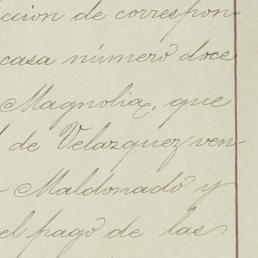 ccion de correspon
casa número doce
Magnolia, que
de Velazquez ven
Maldonado y
el pago de las